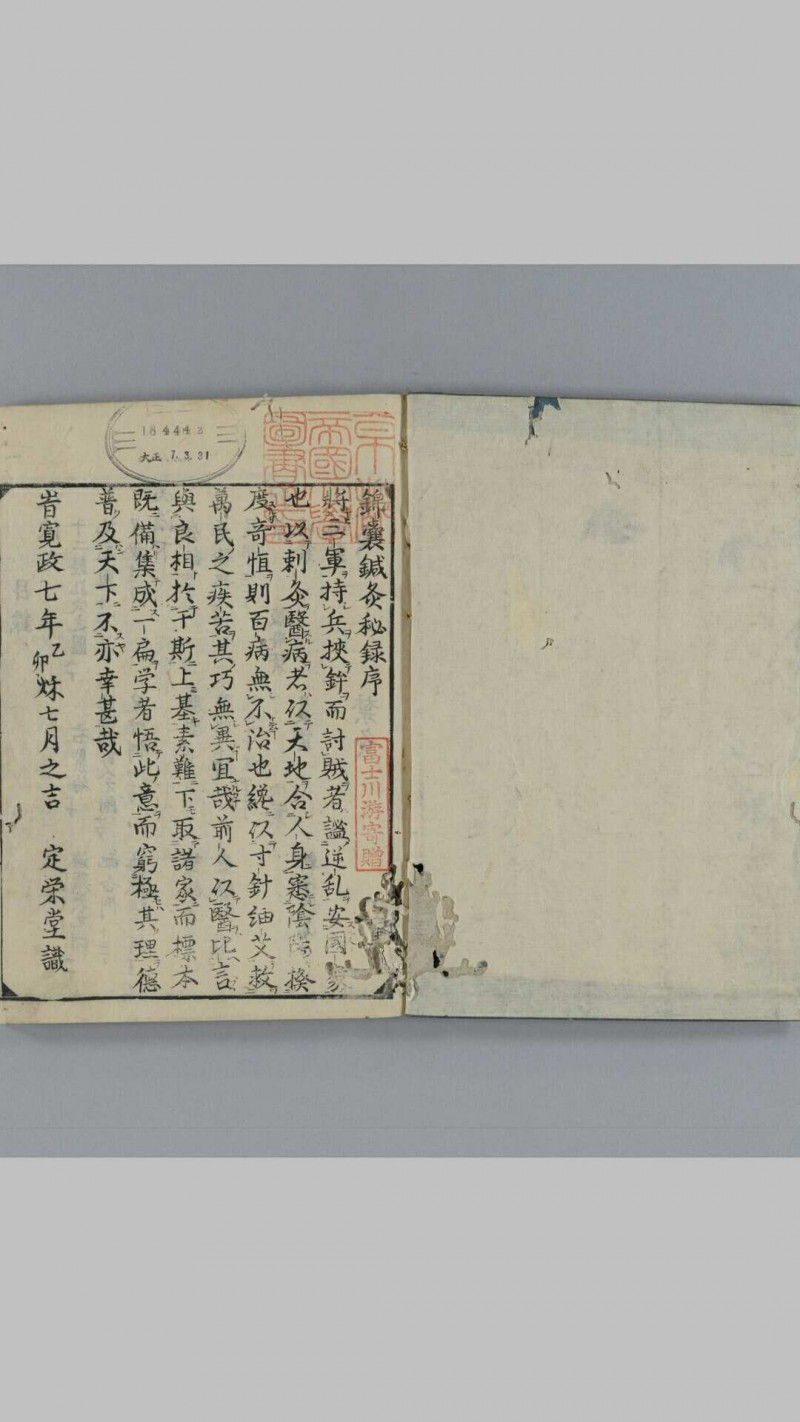 錦囊鍼灸秘録序
將三軍持兵挾鉾而討賊者謐逆乱安國家
也以刺灸醫病者以天地合人身悉陰陽揆
度奇恒則百病無不治也纔以寸針細艾救
萬民之疾苦其巧無異冝哉前人以醫比言
與良相於干斯上基素難下取諸家而標本
既備集成一扁学者悟此意而窮極其理德
普及天下不亦幸甚哉
旹寛政七年乙卯秌七月之吉 定栄堂識
富士川游寄贈
帝國
圖書
184443
大正 7.3.31